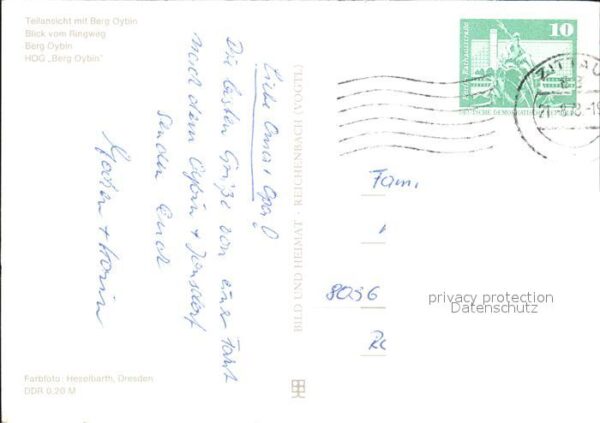 Teilansicht mit Berg Oybin
Blick vom Ringweg
Berg Oybin
HOG „Berg Oybin"
Liebe Oma + Opa!
Die besten Grüße von einer Fahrt
nach dem Oybin + Jonsdorf
senden Euch
+
BILD UND HEIMAT · REICHENBACH (VOGTL)
10
DEUTSCHE DEMOKRATISCHE REPUBLIK
ZITTAU
Fam.
8036
privacy protection
Datenschutz
Farbfoto: Hezelbarth, Dresden
DDR 0,20 M